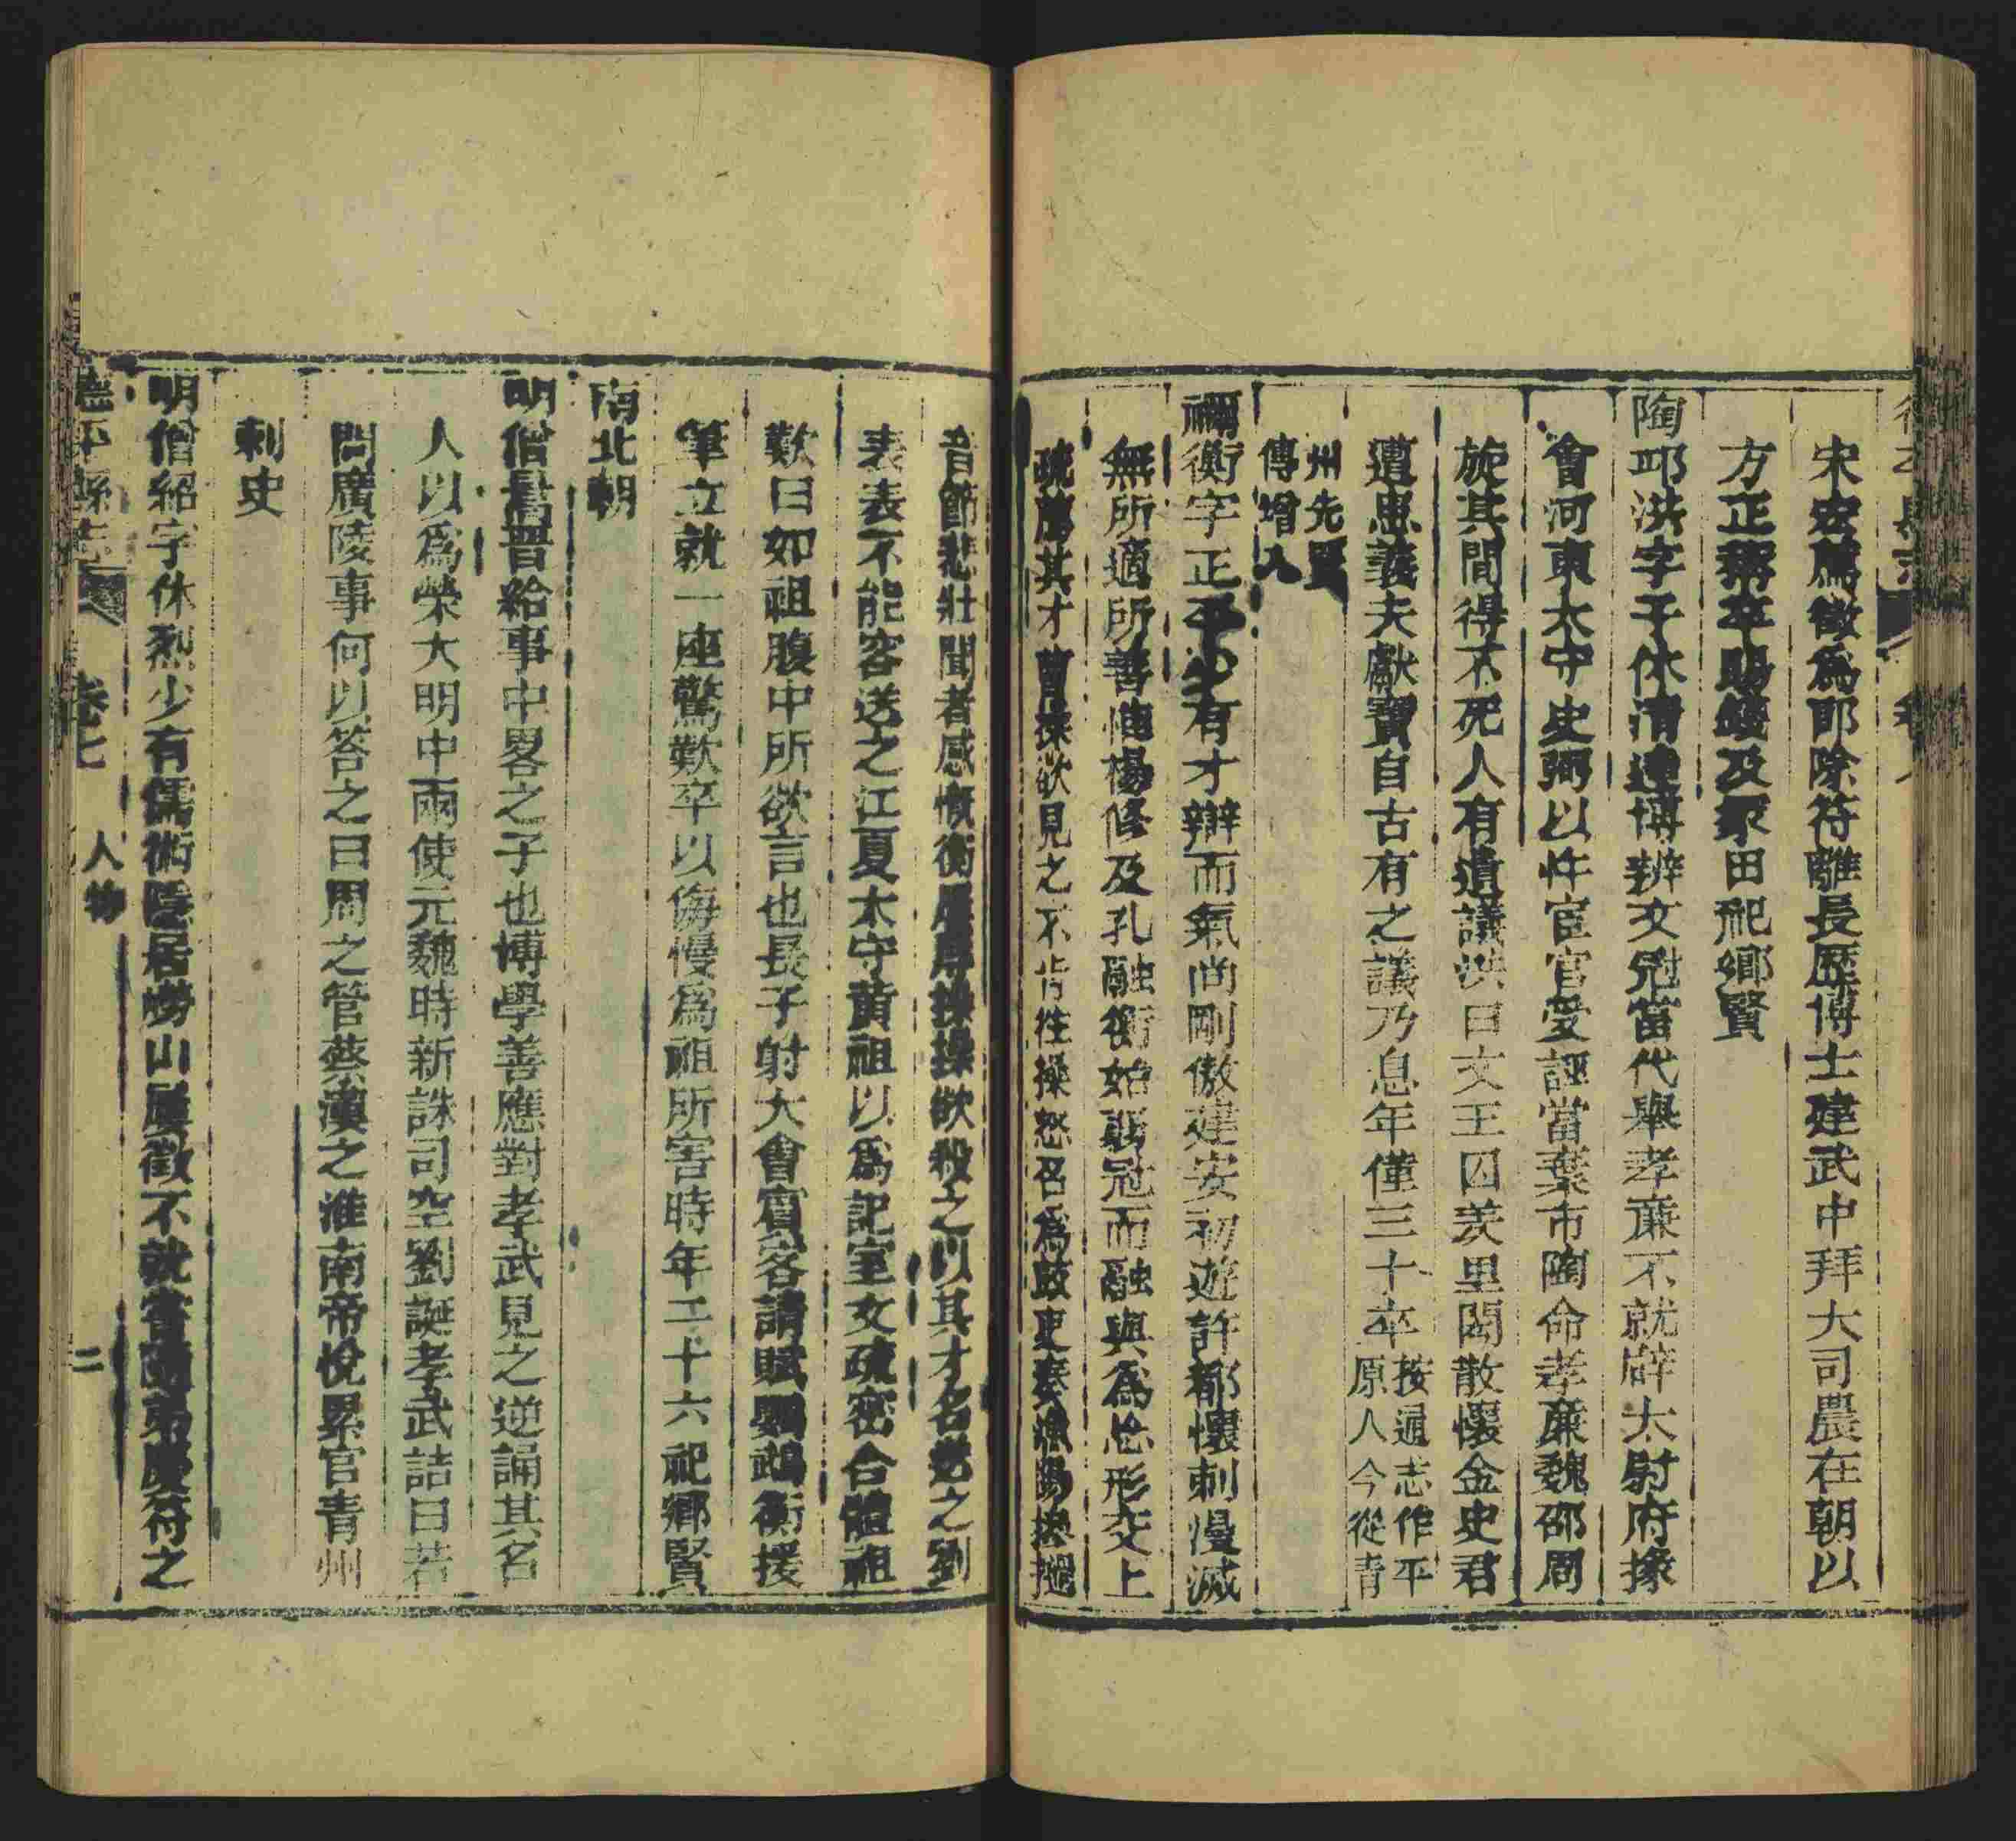 宋宏薦徵爲郎除符離長歷博士建武中拜大司農在朝以
方正稱卒賜錢及冢田祀鄉賢
陶邱洪字子休清達博辨文冠當代舉孝廉不就辟太尉府掾
會河東太守史弼以忤宦官受誣當棄市陶命孝廉魏邵周
旋其間得不死人有遺議洪曰文王囚羑里閎散懷金史君
遭患義夫獻寶自古有之議乃息年僅三十卒按通志作平
原人今從青
州先賢
傳增入
禰衡字正平少有才辯而氣尚剛傲建安初遊許都懷刺漫滅
無所適所善惟楊修及孔融衡始弱冠而融與爲忘形交上
疏薦其才曹操欲見之不肯往操怒召爲鼓吏奏漁陽摻撾
音節悲壯聞者感慨衡屢辱操操欲殺之以其才名送之劉
表表不能容送之江夏太守黃祖以爲記室文疏密合體祖
歎曰如祖腹中所欲言也長子射大會賓客請賦鸚鵡衡援
筆立就一座驚歎卒以侮慢爲祖所害時年二十六祀鄉賢
南北朝
明僧暠晉給事中畧之子也博學善應對孝武見之逆誦其名
人以爲榮大明中兩使元魏時新誅司空劉誕孝武詰曰若
問廣陵事何以答之曰周之管蔡漢之淮南帝悅累官青州
刺史
明僧紹字休烈少有儒術隱居嶗山屢徵不就嘗隨弟慶符之
德平縣志 卷七 人物 二